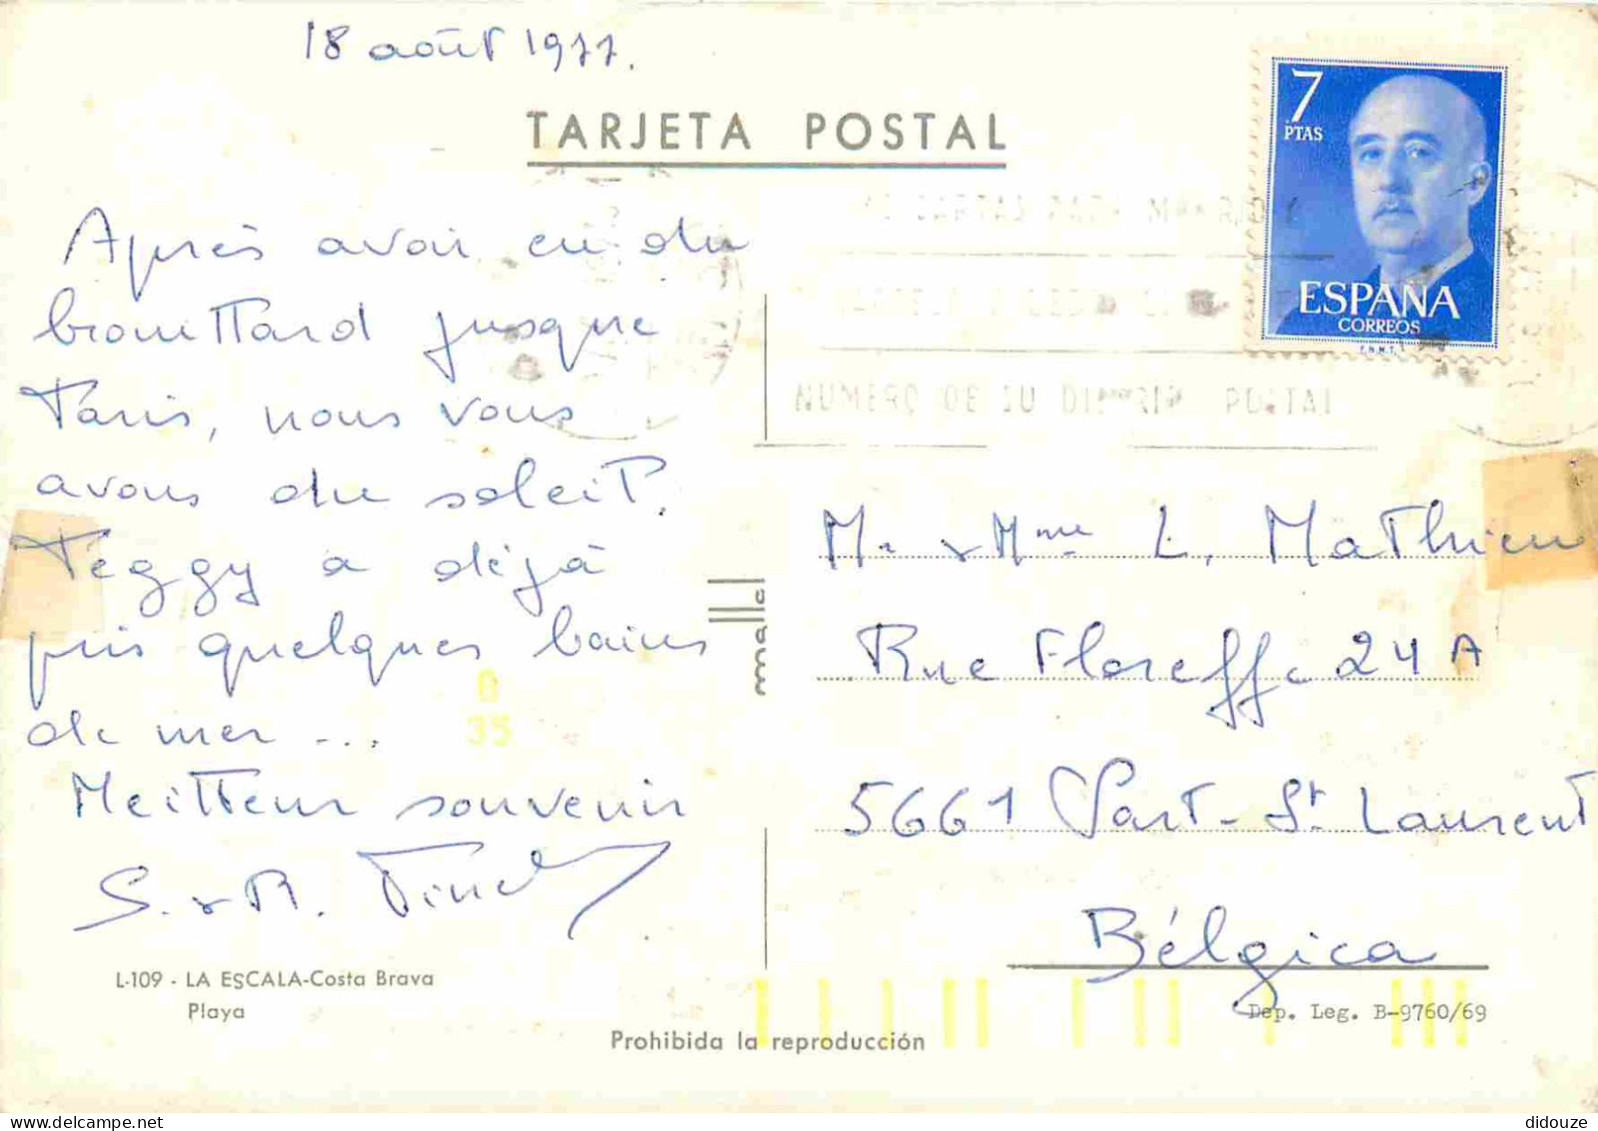 18 août 1977.
TARJETA POSTAL
7
PTAS
ESPAÑA
CORREOS
F.N.M.T.
NUMERO DE SU DISTRITO POSTAL
Après avoir eu du
brouillard jusque
Paris, nous vous
avons du soleil.
Peggy a déjà
pris quelques bains
de mer ...
Meilleur souvenir
S. & R.
L-109 - LA ESCALA-Costa Brava
Playa
35
mallal
M. & Mme L. Mathieu
Rue Floreffe 24 A
5661 Sart-St Laurent
Bélgica
Dep. Leg. B-9760/69
Prohibida la reproducción
didouze